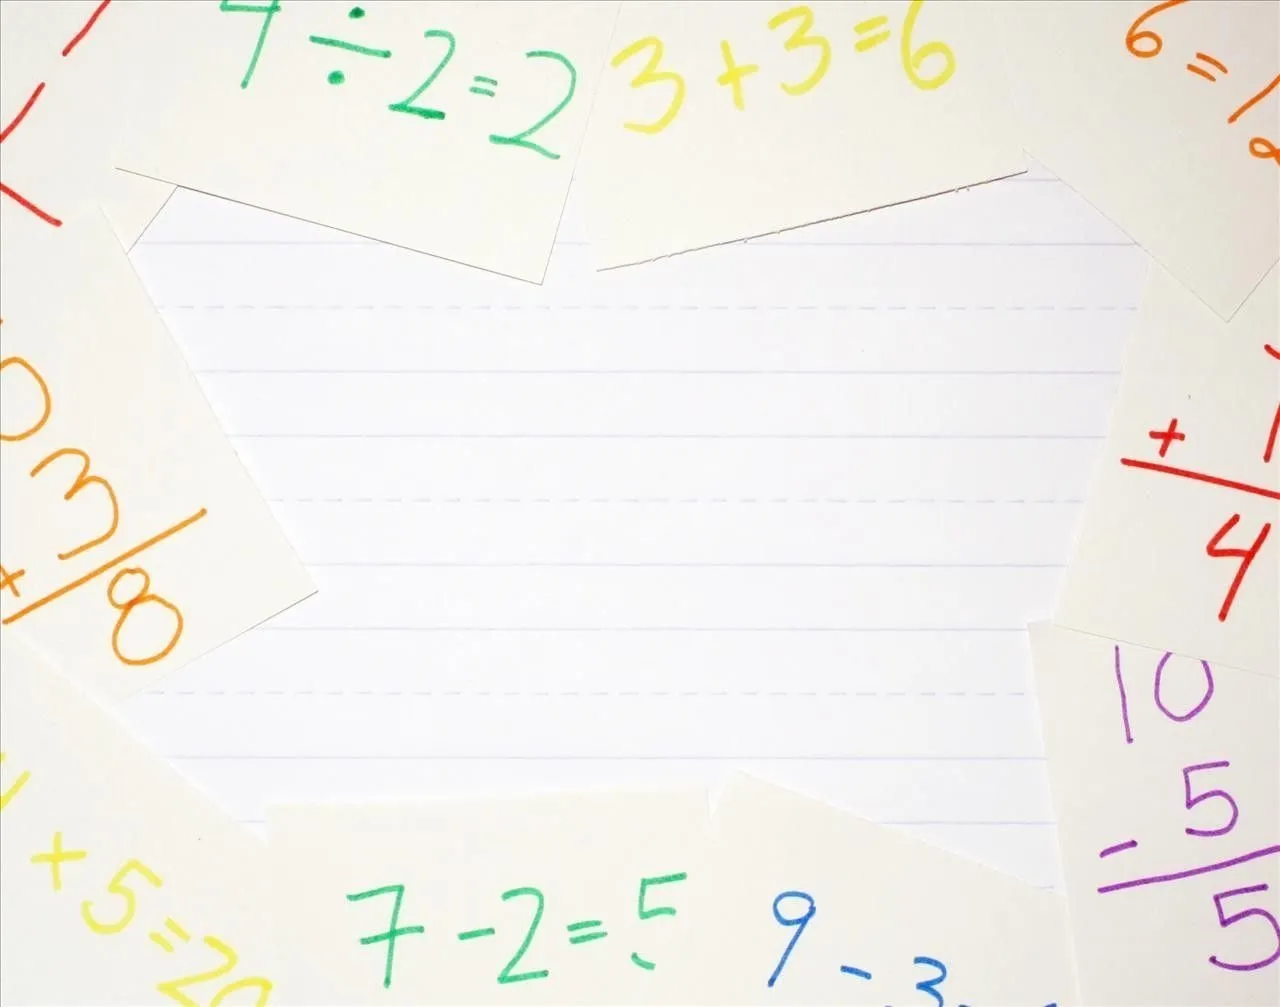 4÷2=2
3+3=6
6=12
+3
8
+1
4
10
-5
5
+5=20
7-2=5
9-3